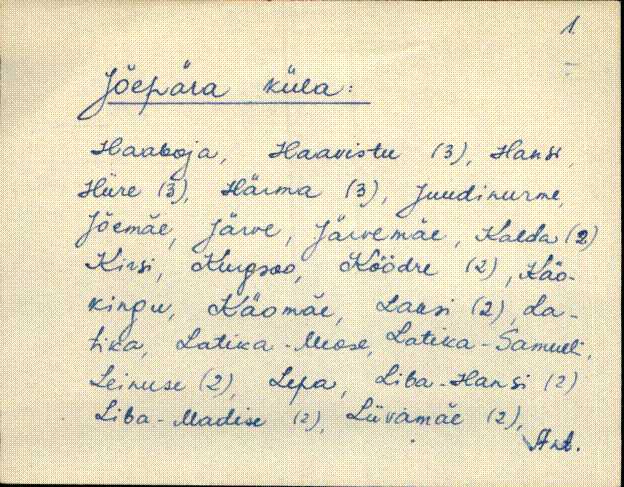 1.
Jõepära küla:
Haaboja, Haavistu (3), Hansi,
Hüre (3), Härma (3), Juudinurme,
Jõemäe, Järve, Järvemäe, Kalda (2)
Kirsi, Kurgsoo, Köödre (2), Käo-
kingu, Käomäe, Lansi (2), La-
tika, Latika-Mose, Latika-Samueli,
Leinuse (2), Lepa, Liba-Hansi (2)
Liba-Madise (2), Liivamäe (2),
Ant.